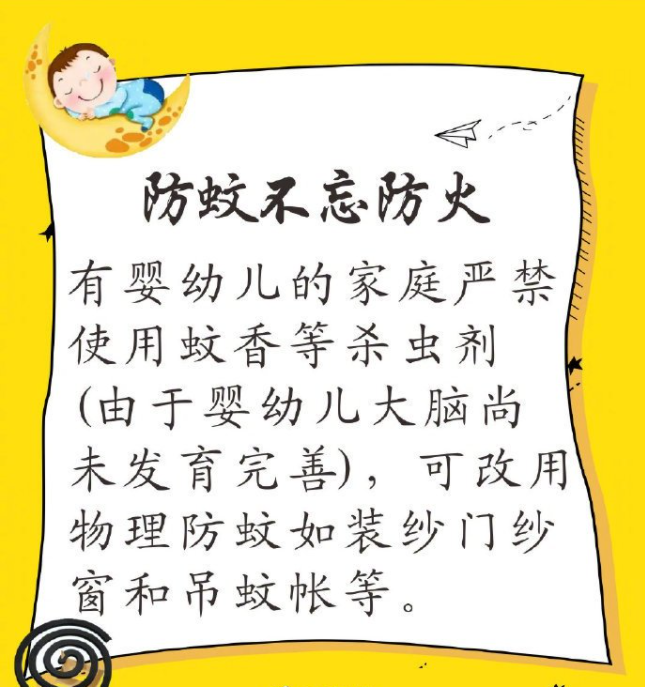 防蚊不忘防火
有婴幼儿的家庭严禁
使用蚊香等杀虫剂
(由于婴幼儿大脑尚
未发育完善)，可改用
物理防蚊如装纱门纱
窗和吊蚊帐等。